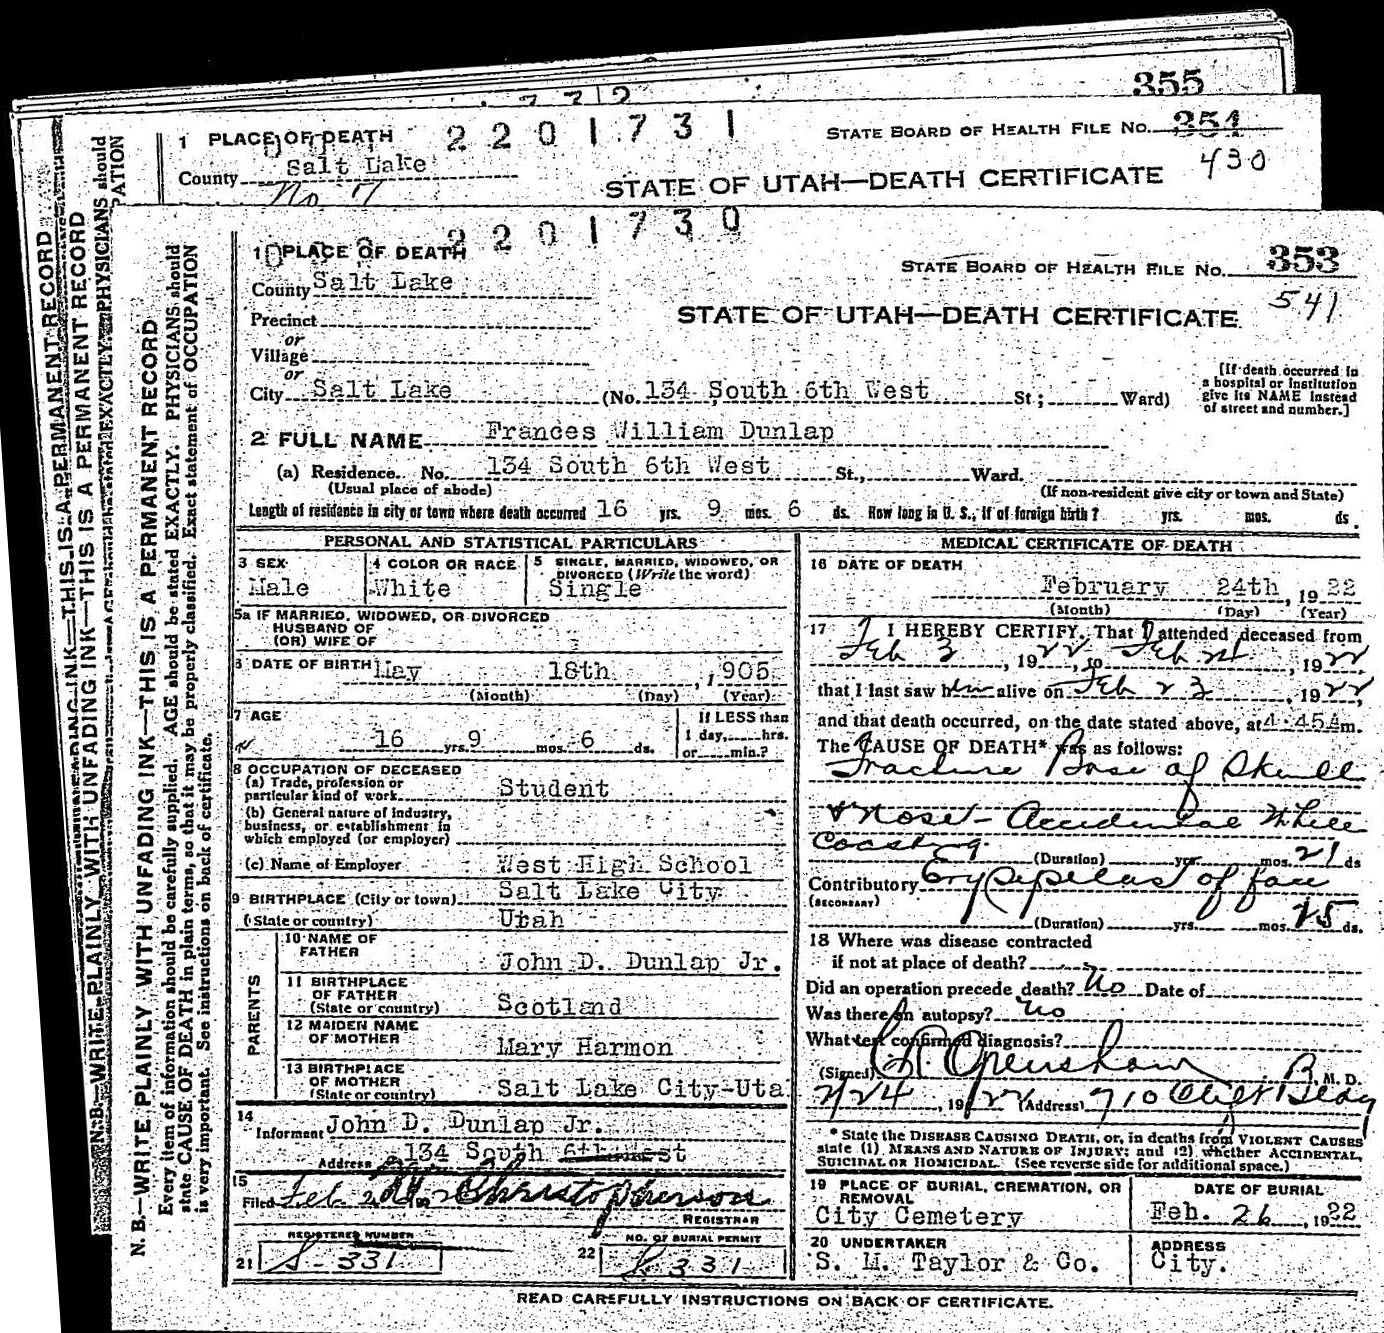 355
1 PLACE OF DEATH 2201731 STATE BOARD OF HEALTH FILE No. 354
County Salt Lake STATE OF UTAH—DEATH CERTIFICATE 430
No 7
2201730
1 PLACE OF DEATH STATE BOARD OF HEALTH FILE NO. 353
County Salt Lake 541
Precinct STATE OF UTAH—DEATH CERTIFICATE
or
Village
or
City Salt Lake (No. 134 South 6th West St; Ward)
[If death occurred in
a hospital or institution
give its NAME instead
of street and number.]
2 FULL NAME Frances William Dunlap
(a) Residence. No. 134 South 6th West St., Ward.
(Usual place of abode) (If non-resident give city or town and State)
Length of residence in city or town where death occurred 16 yrs. 9 mos. 6 ds. How long in U. S., if of foreign birth? yrs. mos. ds.
PERSONAL AND STATISTICAL PARTICULARS
3 SEX
Male
4 COLOR OR RACE
White
5 SINGLE, MARRIED, WIDOWED, OR
DIVORCED (Write the word)
Single
5a IF MARRIED, WIDOWED, OR DIVORCED
HUSBAND OF
(OR) WIFE OF
6 DATE OF BIRTH May 18th , 1905
(Month) (Day) (Year)
7 AGE
16 yrs. 9 mos. 6 ds.
If LESS than
1 day, hrs.
or min.?
8 OCCUPATION OF DECEASED
(a) Trade, profession or
particular kind of work Student
(b) General nature of industry,
business, or establishment in
which employed (or employer)
(c) Name of Employer West High School
9 BIRTHPLACE (City or town) Salt Lake City
(State or country) Utah
PARENTS
10 NAME OF
FATHER John D. Dunlap Jr.
11 BIRTHPLACE
OF FATHER
(State or country) Scotland
12 MAIDEN NAME
OF MOTHER Mary Harmon
13 BIRTHPLACE
OF MOTHER
(State or country) Salt Lake City-Uta
14
Informant John D. Dunlap Jr.
Address 134 South 6th West
15
Filed Feb Christopherson
REGISTRAR
REGISTERED NUMBER
21 S-331
NO. OF BURIAL PERMIT
22 S 331
MEDICAL CERTIFICATE OF DEATH
16 DATE OF DEATH
February 24th , 1922
(Month) (Day) (Year)
17 I HEREBY CERTIFY, That I attended deceased from
Feb 3 , 1922, to Feb 24 , 1922
that I last saw him alive on Feb 23 , 1922,
and that death occurred, on the date stated above, at 4.45Am.
The CAUSE OF DEATH* was as follows:
Fracture Base of Skull
& Nose - Accidental While
Coasting.
(Duration) yrs. mos. 21 ds
Contributory Erysipelas of face
(SECONDARY)
(Duration) yrs. mos. 25 ds.
18 Where was disease contracted
if not at place of death?
Did an operation precede death? No Date of
Was there an autopsy? No
What test confirmed diagnosis?
(Signed) Openshaw M. D.
2/24, 1922 (Address) 710 Clift Bldg
* State the DISEASE CAUSING DEATH, or, in deaths from VIOLENT CAUSES
state (1) MEANS AND NATURE OF INJURY; and (2) whether ACCIDENTAL,
SUICIDAL OR HOMICIDAL. (See reverse side for additional space.)
19 PLACE OF BURIAL, CREMATION, OR
REMOVAL
City Cemetery
DATE OF BURIAL
Feb. 26, 1922
20 UNDERTAKER
S. M. Taylor & Co.
ADDRESS
City.
READ CAREFULLY INSTRUCTIONS ON BACK OF CERTIFICATE.
N. B.—WRITE PLAINLY WITH UNFADING INK—THIS IS A PERMANENT RECORD
Every item of information should be carefully supplied. AGE should be stated EXACTLY. PHYSICIANS should
state CAUSE OF DEATH in plain terms, so that it may be properly classified. Exact statement of OCCUPATION
is very important. See instructions on back of certificate.